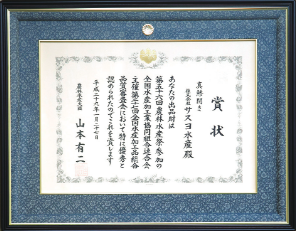 賞状
真鯵開き
株式会社 サスヨ水産殿
あなたの出品財は
第五十六回農林水産祭参加の
全国水産加工業協同組合連合会
主催第二十七回全国水産加工品総合
品質審査会において特に優秀と
認められたのでこれを賞します
平成二十九年一月二十七日
農林水産大臣
山本有二